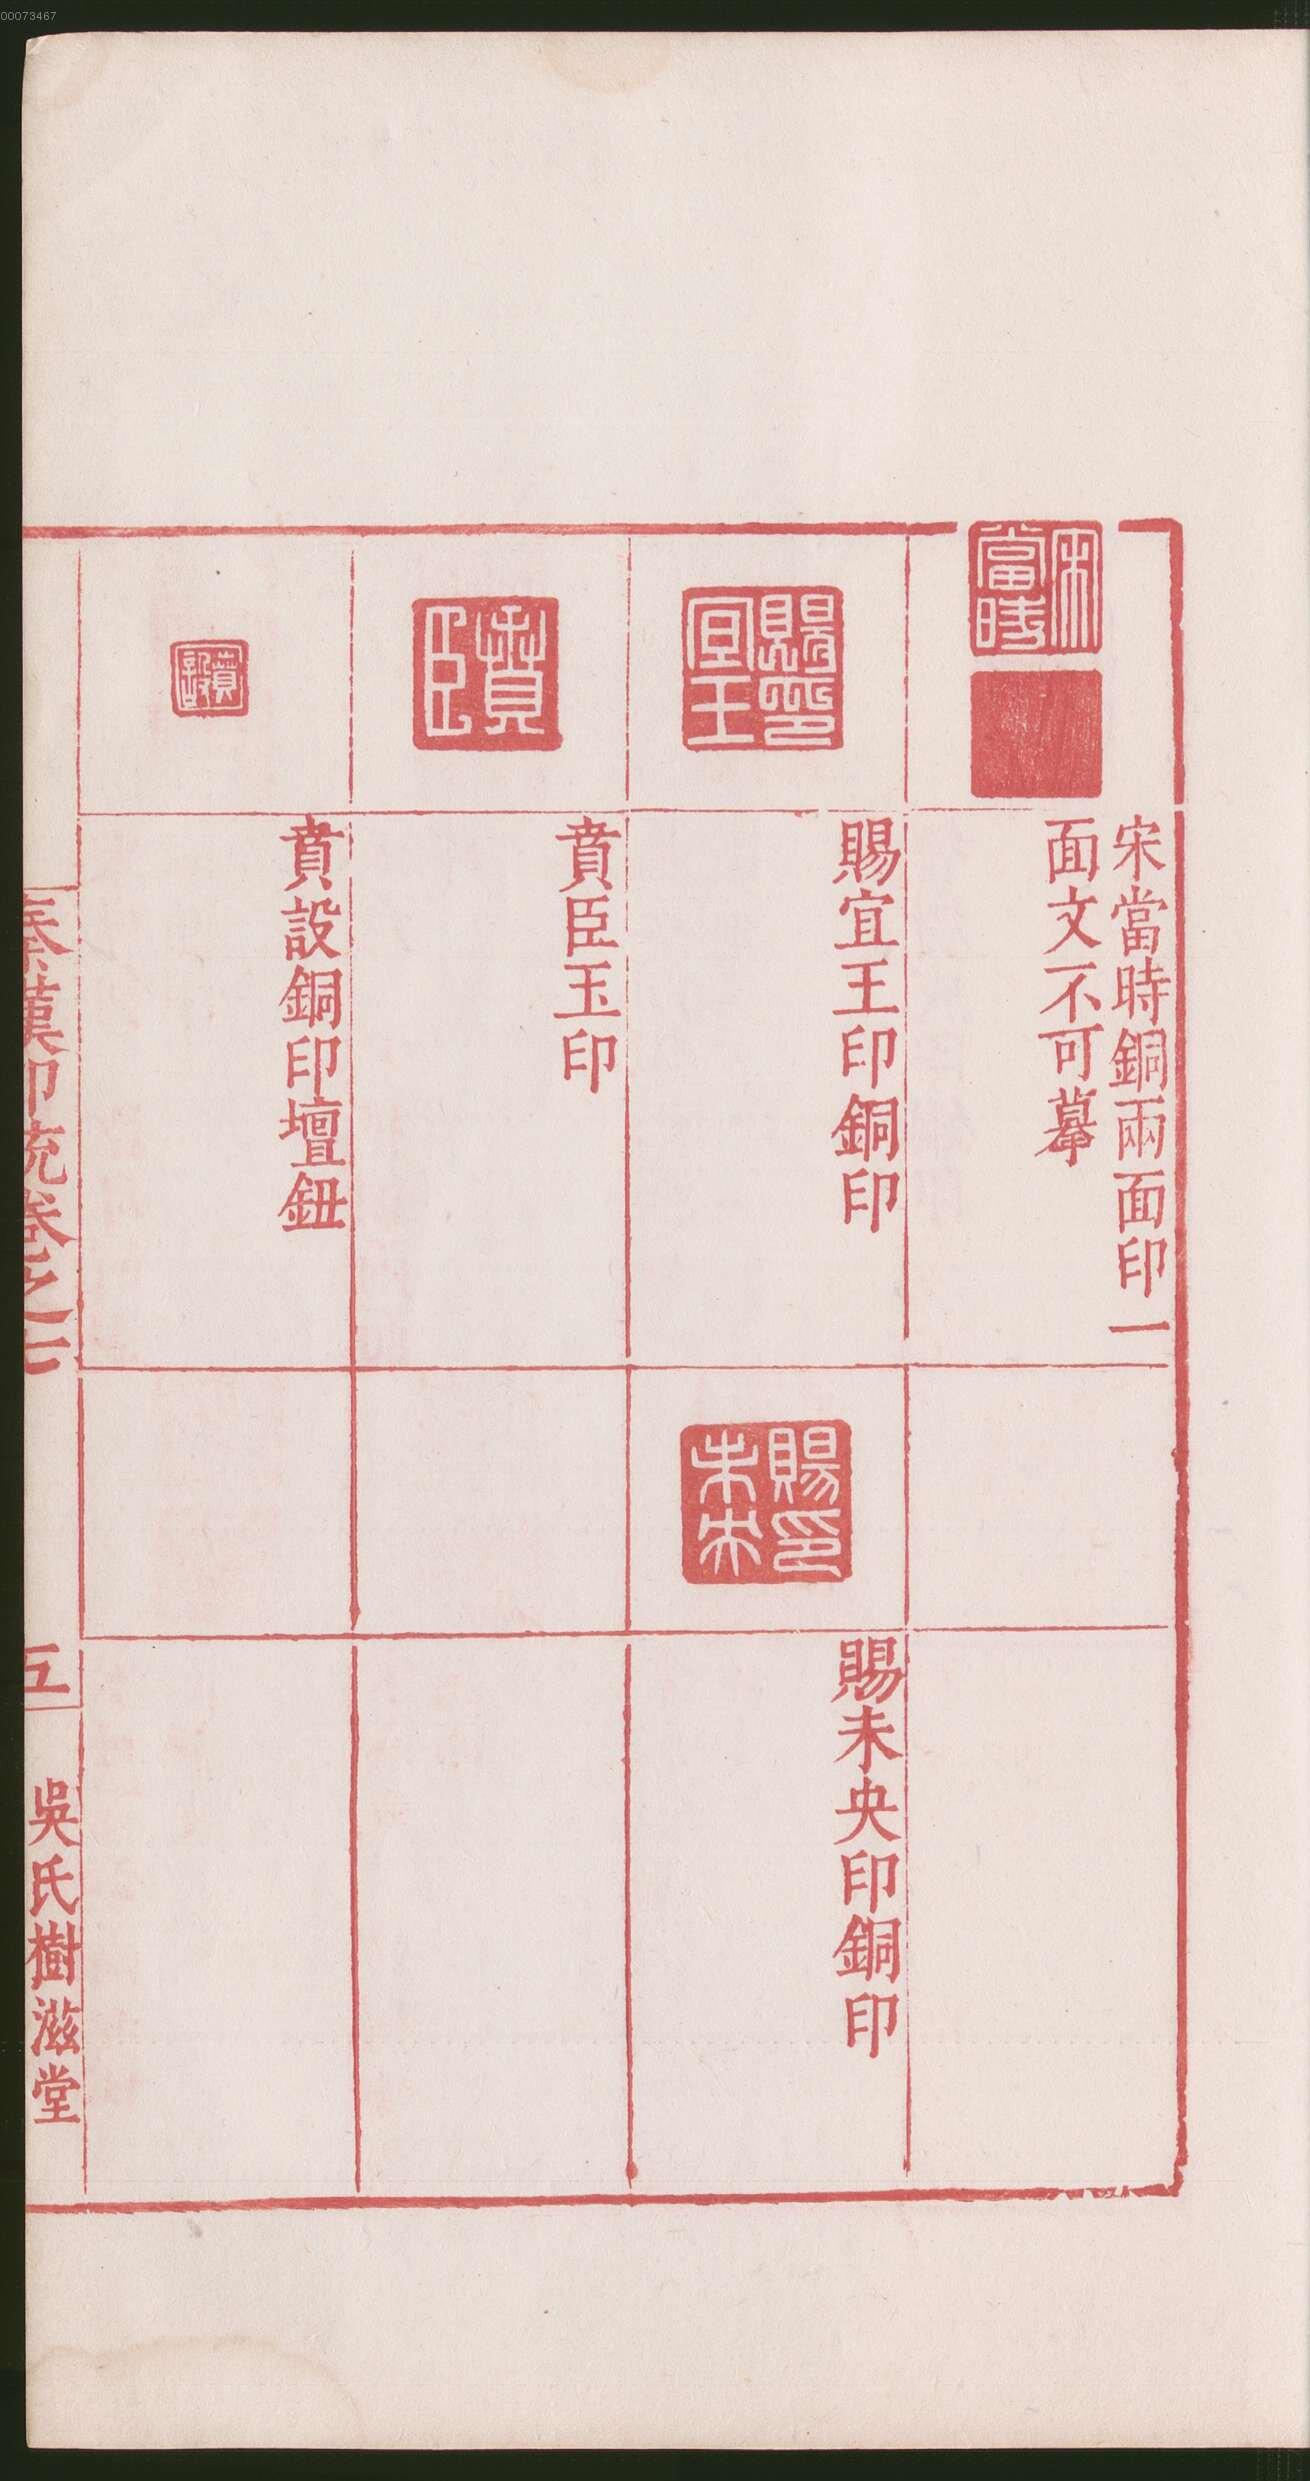 00073467
宋當時
宋當時銅兩面印一
面文不可摹
賜印宜王
賜宜王印銅印
賜印未央
賜未央印銅印
賁臣
賁臣玉印
賁設
賁設銅印壇鈕
秦漢印統卷之七
五
吳氏樹滋堂